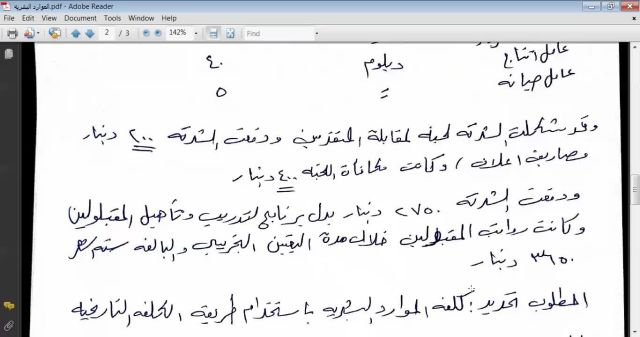 الموارد البشرية.pdf - Adobe Reader
File Edit View Document Tools Window Help
2 / 3 142% Find
عامل انتاج دبلوم ٤٠
عامل صيانه = ٥
وقد شكلت الشركه لجنه لمقابلة المتقدمين ودفعت الشركه ٢٠٠ دينار
مصاريف اعلان / وكانت مكافأة اللجنه ٤٠٠ دينار
ودفعت الشركه ٢٧٥٠ دينار بدل برنامج لتدريب وتأهيل المقبولين
وكانت رواتب المقبولين خلال مدة التعيين التجريبي والبالغه ستة اشهر
٣٦٥٠ دينار
المطلوب تحديد: كلفه الموارد البشريه باستخدام طريقه الكلفه التاريخيه